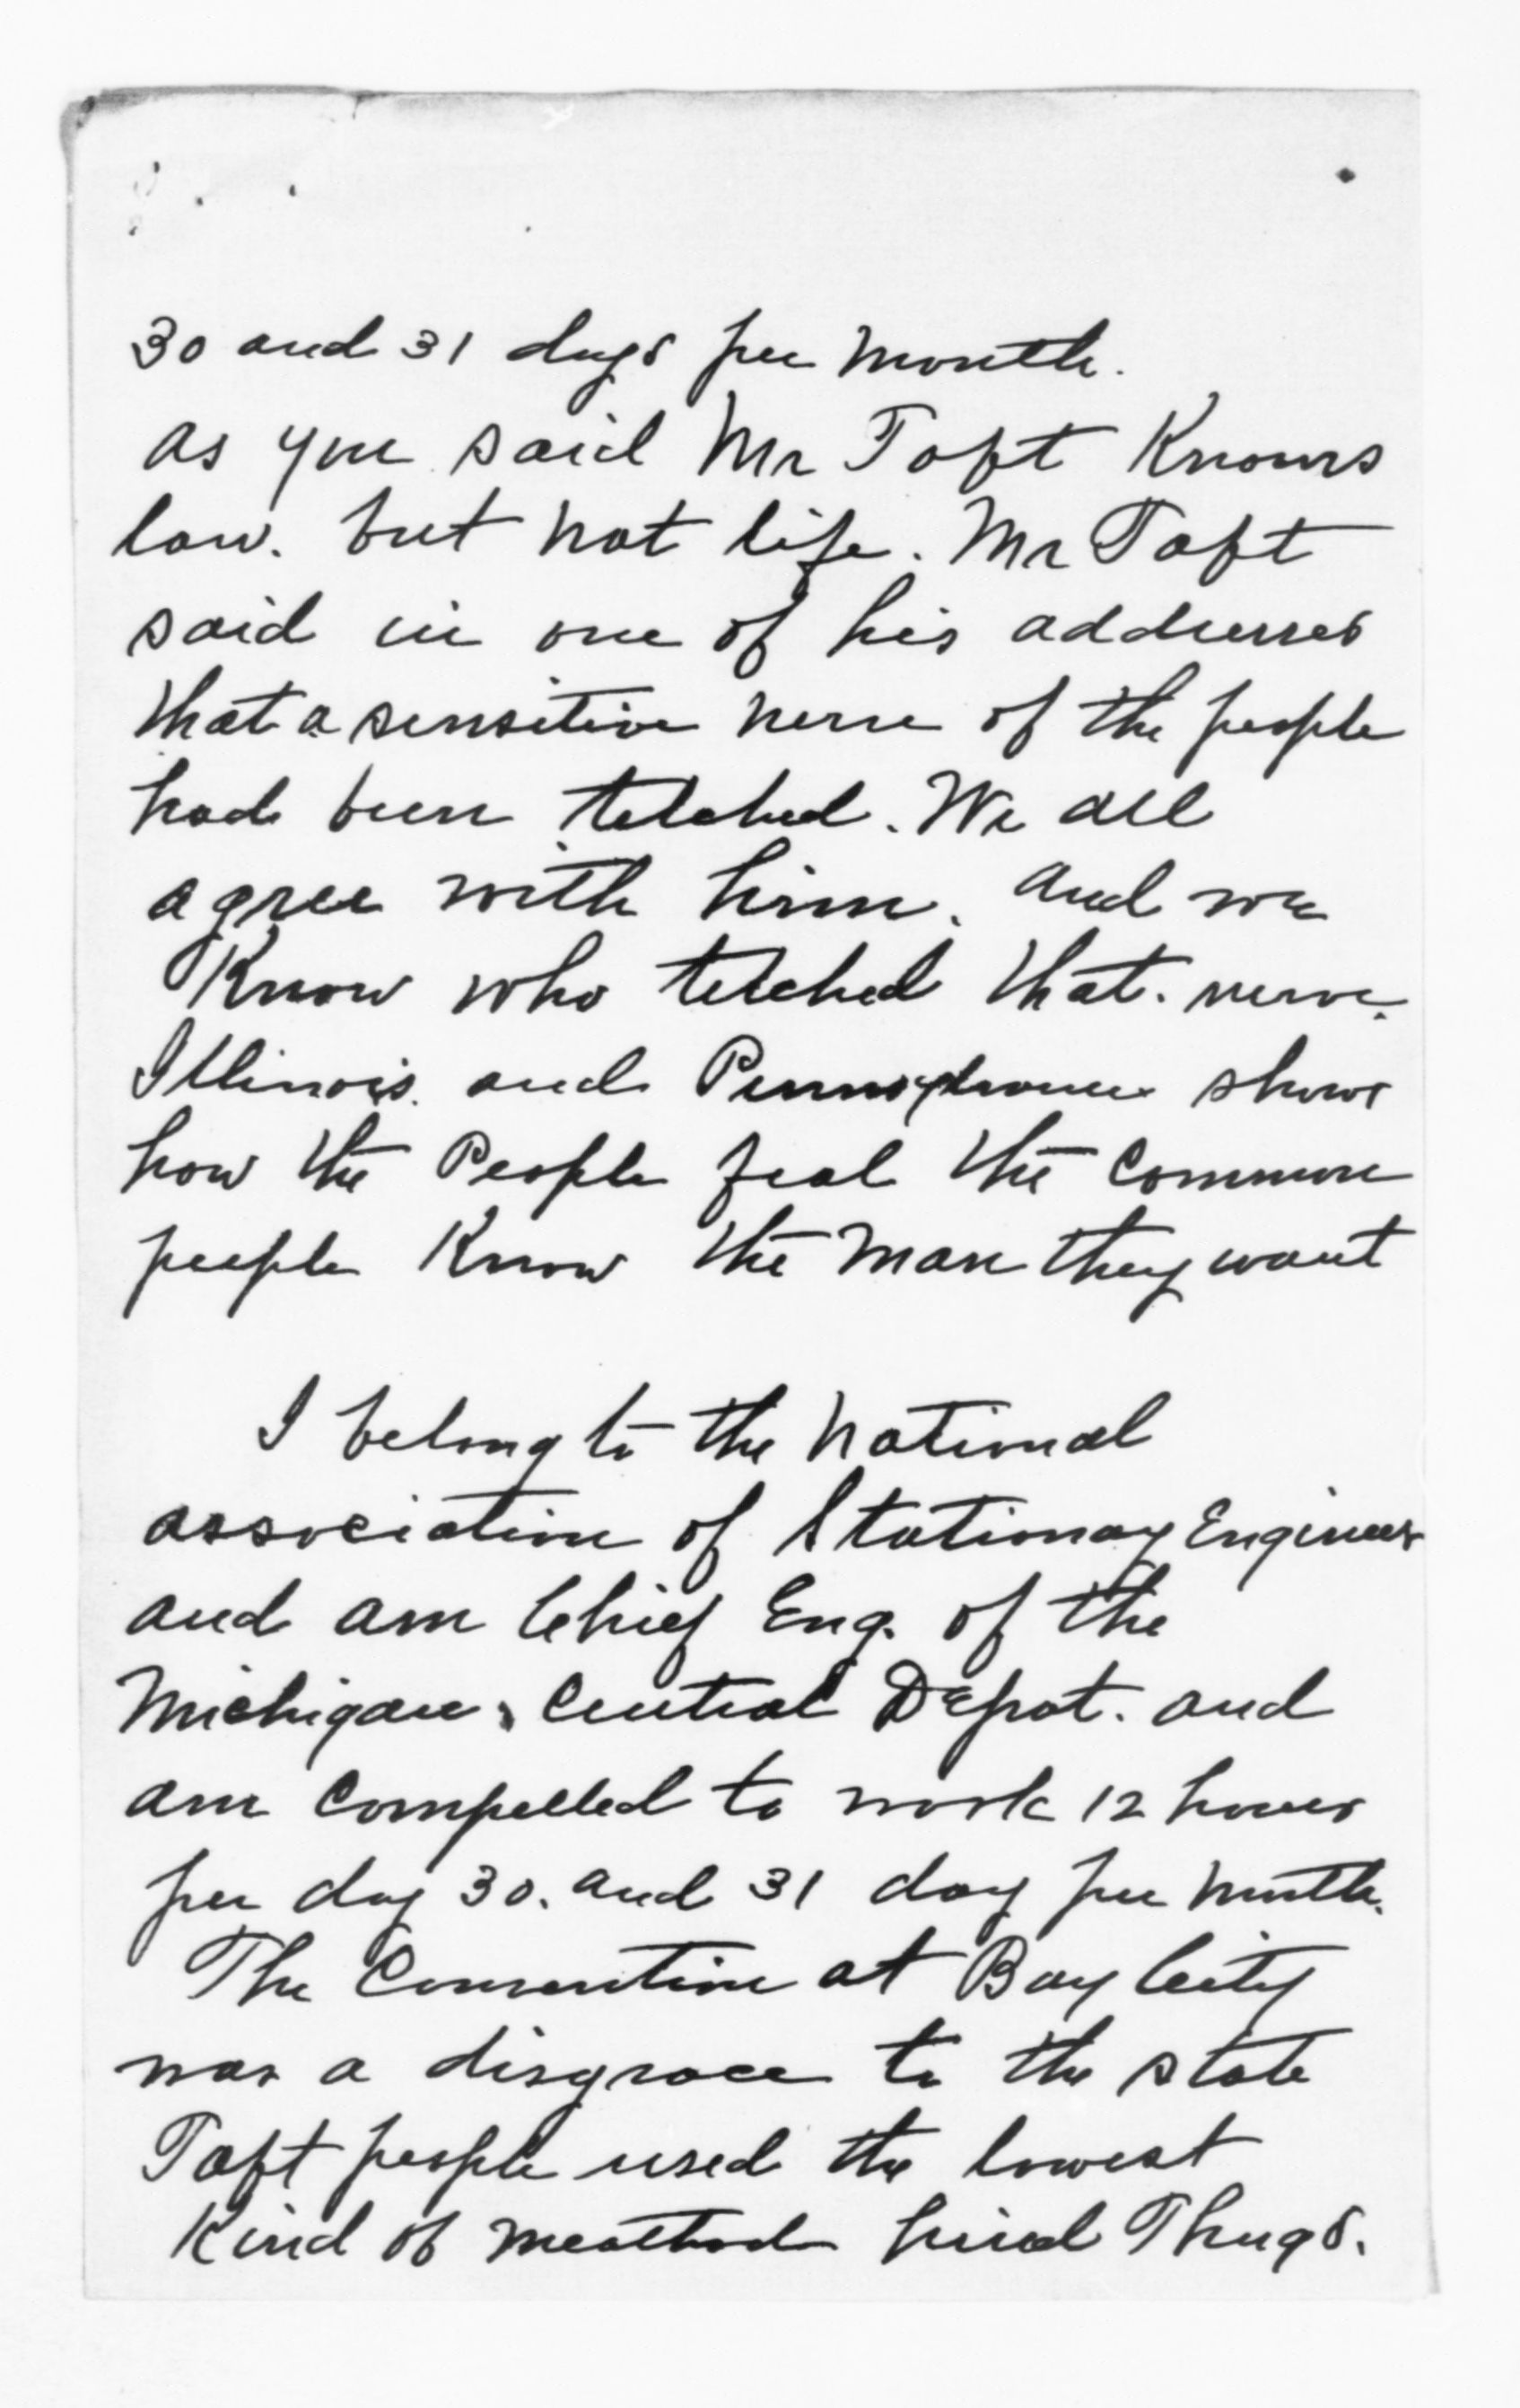 30 and 31 days per month.
as you said Mr Taft Knows
law. but not life. Mr Taft
said in one of his addresses
that a sensitive nerve of the people
had been tetched. We all
agree with him. and we
Know who tetched that. nerve.
Illinois. and Pennsylvania shows
how the People feal the Common
people Know the man they want
I belong to the National
association of Stationay Engineers
and am Chief Eng. of the
Michigan, Central Depot. and
am Compelled to work 12 hours
per day 30. and 31 day per month.
The Convention at Bay City
was a disgrace to the state
Taft people used the lowest
Kind of meathod hired Thugs.